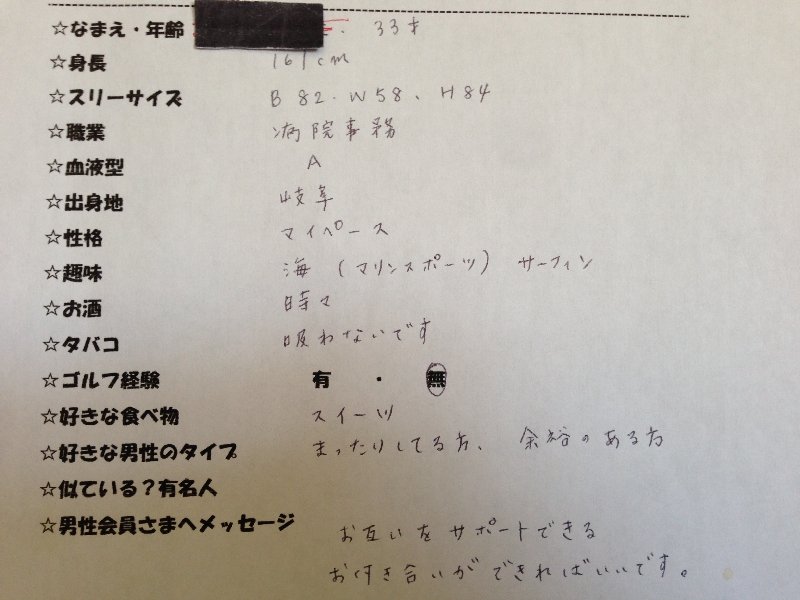 ☆なまえ・年齢 33才
☆身長 161cm
☆スリーサイズ B 82. W58、H84
☆職業 病院事務
☆血液型 A
☆出身地 岐阜
☆性格 マイペース
☆趣味 海(マリンスポーツ) サーフィン
☆お酒 時々
☆タバコ 吸わないです
☆ゴルフ経験 有 ・ 無
☆好きな食べ物 スイーツ
☆好きな男性のタイプ まったりしてる方、余裕のある方
☆似ている?有名人
☆男性会員さまへメッセージ
お互いをサポートできる
お付き合いができればいいです。